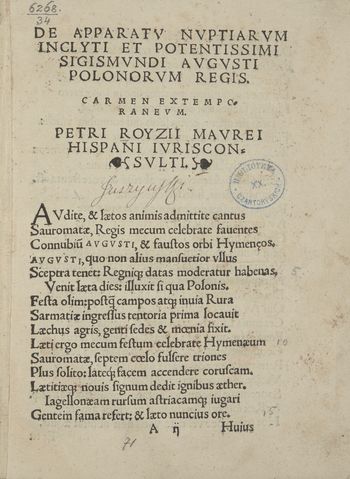 6268.
34
DE APPARATV NVPTIARVM
INCLYTI ET POTENTISSIMI
SIGISMVNDI AVGVSTI
POLONORVM REGIS.
CARMEN EXTEMPO-
RANEVM.
PETRI ROYZII MAVREI
HISPANI IVRISCON-
SVLTI.
BIBLIOTEKA
XX.
CZARTORYSKICH
AVdite, & lætos animis admittite cantus
Sauromatæ, Regis mecum celebrate fauentes
Connubiũ AVGVSTI, & faustos orbi Hymenços.
AVGVSTI, quo non alius mansuetior vllus
Sceptra tenet: Regniq; datas moderatur habenas, 5.
Venit læta dies: illuxit si qua Polonis.
Festa olim: postq̃ campos atq; inuia Rura
Sarmatiæ ingressus tentoria prima locauit
Læchus agris, genti sedes & mœnia fixit.
Læti ergo mecum festum celebrate Hymenæum 10
Sauromatæ, septem cœlo fulsere triones
Plus solito: lateq; facem accendere coruscam.
Lætitiæq; nouis signum dedit ignibus æther.
Iagellonæam rursum astriacamq; iugari
Gentem fama refert: & læto nuncius ore. 15.
A ij Huius
71